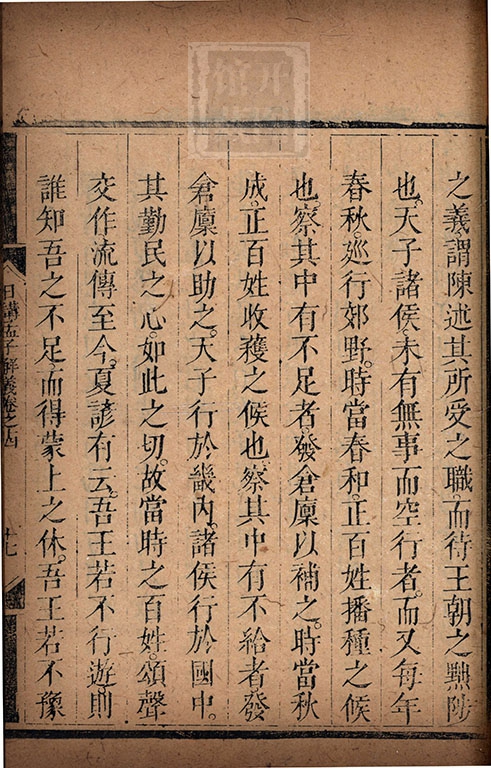 之義謂陳述其所受之職而待王朝之黜陟
也。天子諸侯未有無事而空行者。而又每年
春秋。廵行郊野。時當春和。正百姓播種之候
也。察其中有不足者。發倉廩以補之。時當秋
成。正百姓收穫之候也。察其中有不給者發
倉廩以助之。天子行於畿內。諸侯行於國中。
其勤民之心。如此之切。故當時之百姓。頌聲
交作。流傳至今。夏諺有云。吾王若不行遊。則
誰知吾之不足。而得蒙上之休。吾王若不豫
日講孟子解義卷之四
十七